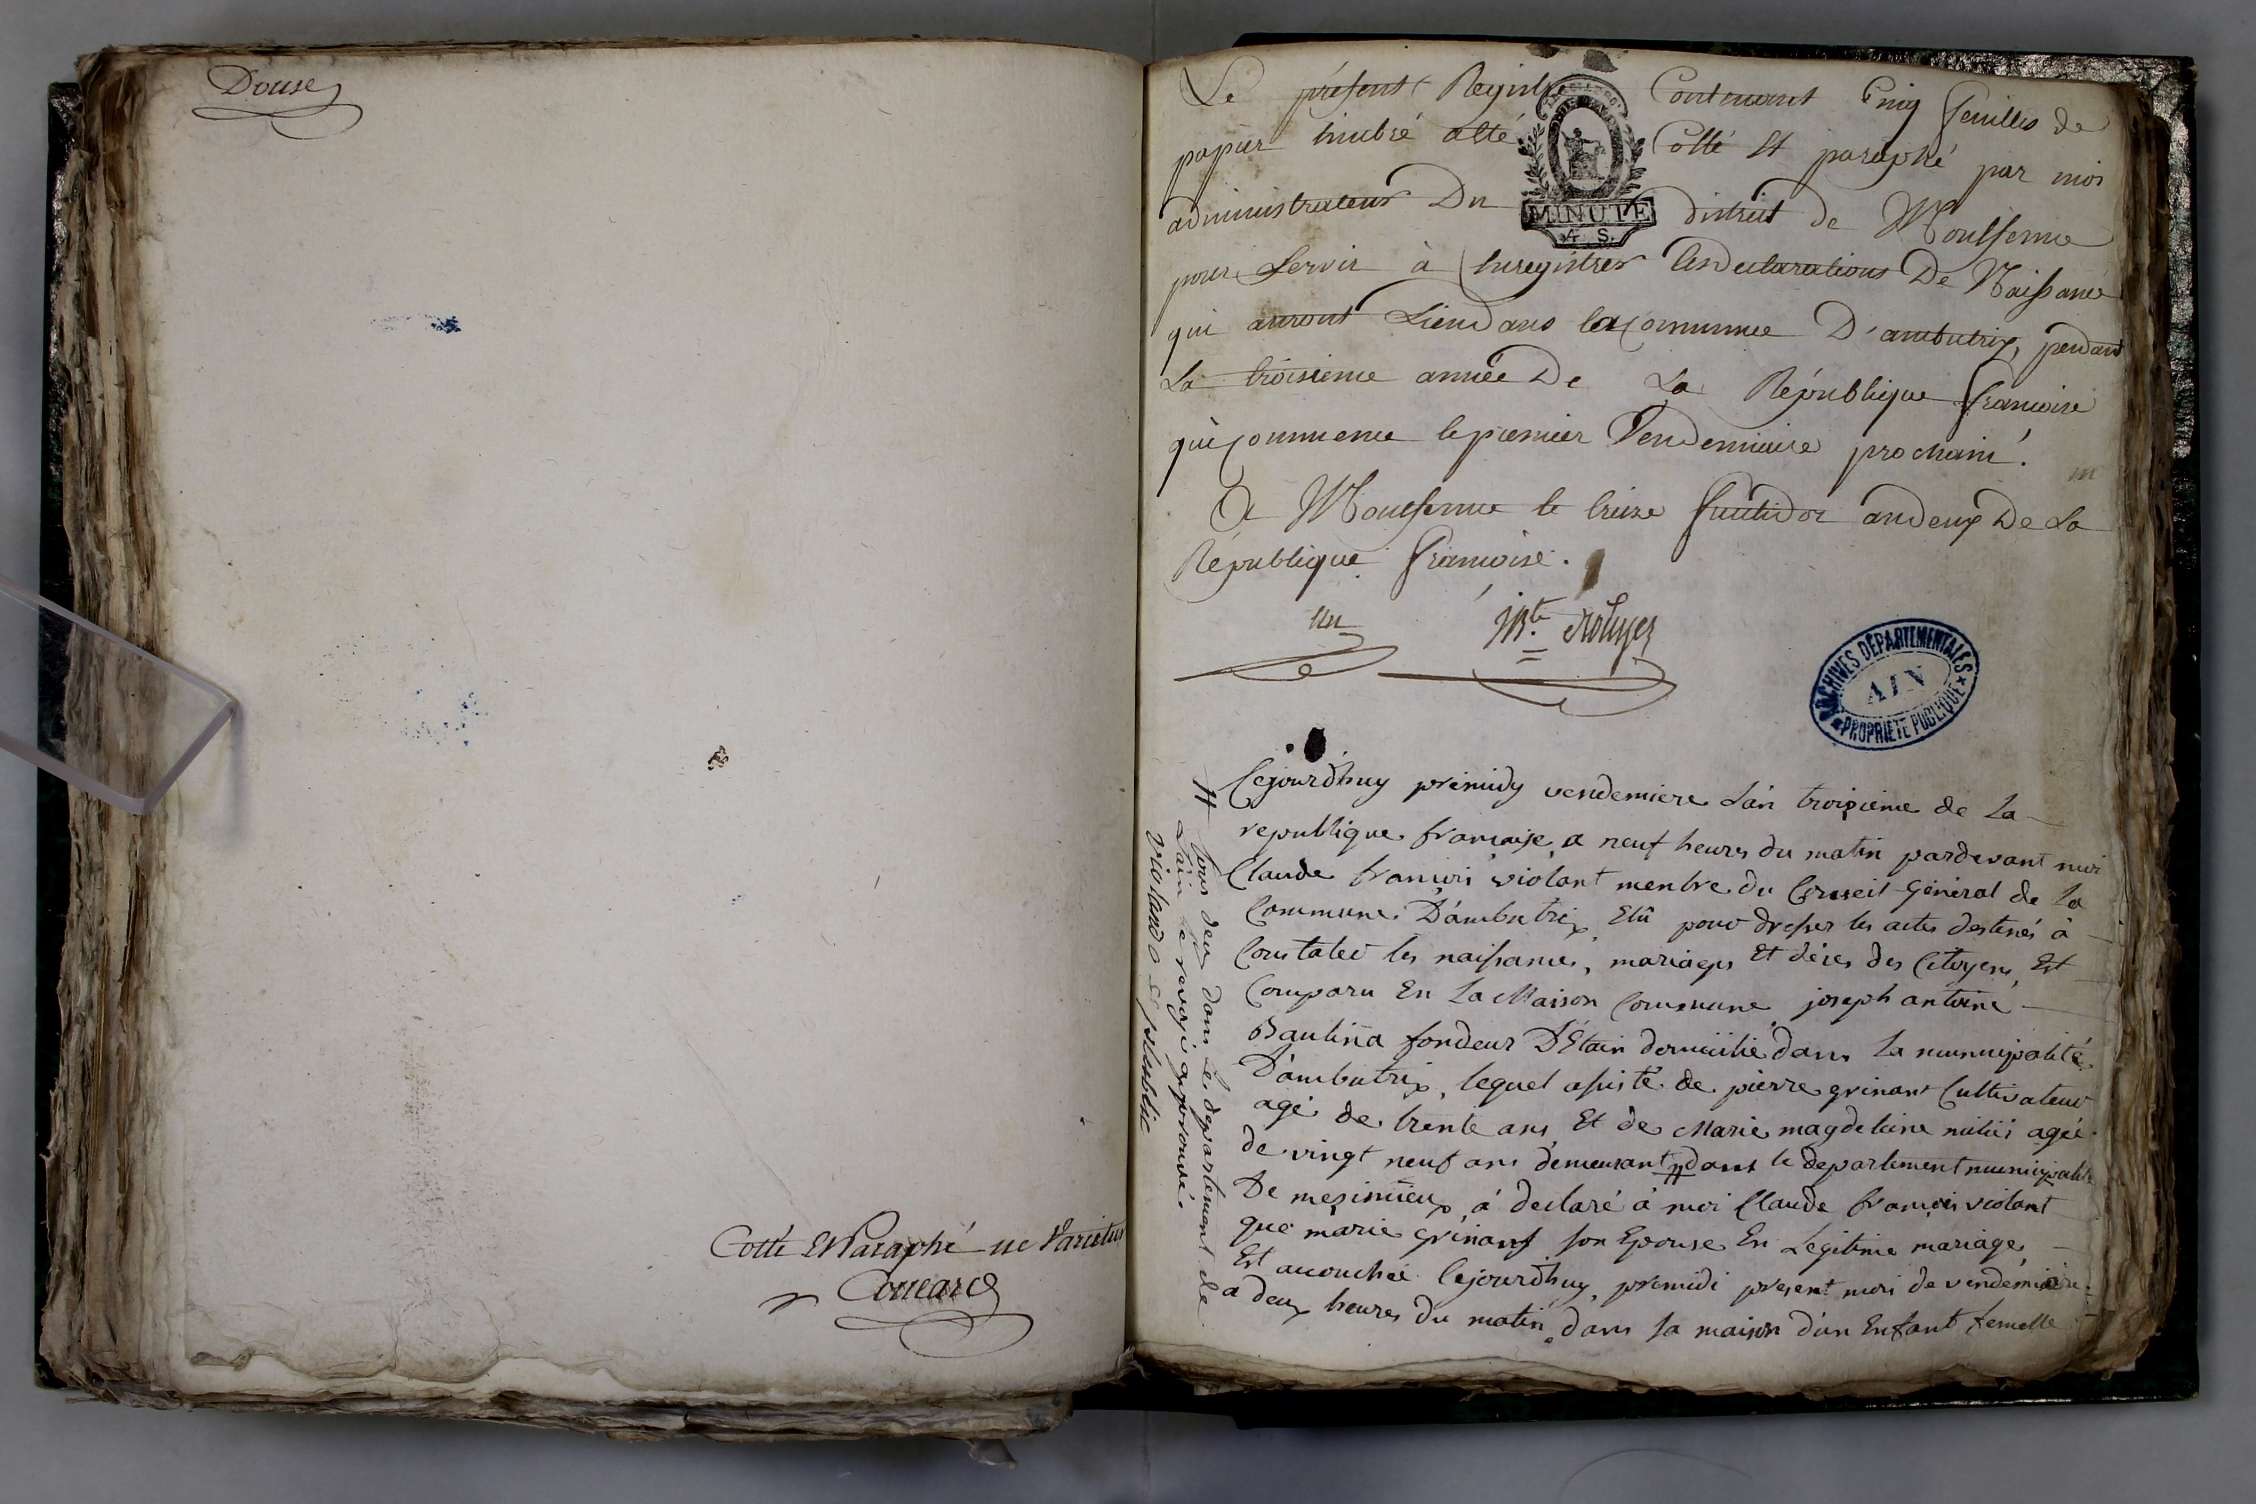 Douse
Cotté Et Paraphé ne Varietur
Le présent Registre Contenant Cinq feuilles de
papier timbré a été Cotté Et paraphé par moi
administrateur Du district de Montferme
pour Servir à Enregistrer les declarations De Naissance
qui auront Lieu dans la Commune D'ambutrix, pendant
La troisieme année De La République francoise
qui Commence le premier Vendemiaire prochain.
A Montferme le treize fructidor an deux De La
République francoise.
un
MINUTE
4 S.
ARCHIVES DÉPARTEMENTALES
AIN
PROPRIÉTÉ PUBLIQUE
Cejourdhuy primidy vendemiere L'an troisieme de La
republique francaise a neuf heures du matin pardevant moi
Claude francois violant menbre du Conseil Général de La
Commune D'ambutrix Elû pour dresser les actes destinés à
Constater les naissances, mariages Et décés des Citoyens Est
Comparu En La Maison Commune joseph antoine
Baulina fondeur D'Etain domicilié dans La municipalité
D'ambutrix, lequel assisté de pierre grinant Cultivateur
agé de trente ans Et de Marie magdeleine agée
de vingt neuf ans demeurant # dans le departement municipalité
De mesimieux à déclaré à moi Claude francois violant
que marie grinant son Epouse En Légitime mariage
Est accouchée Cejourdhuy primidi present mois de vendémiaire
a deux heures du matin dans sa maison d'un Enfant femelle
# tous deux dans Le departement de
L'ain Le renvoi approuvé.